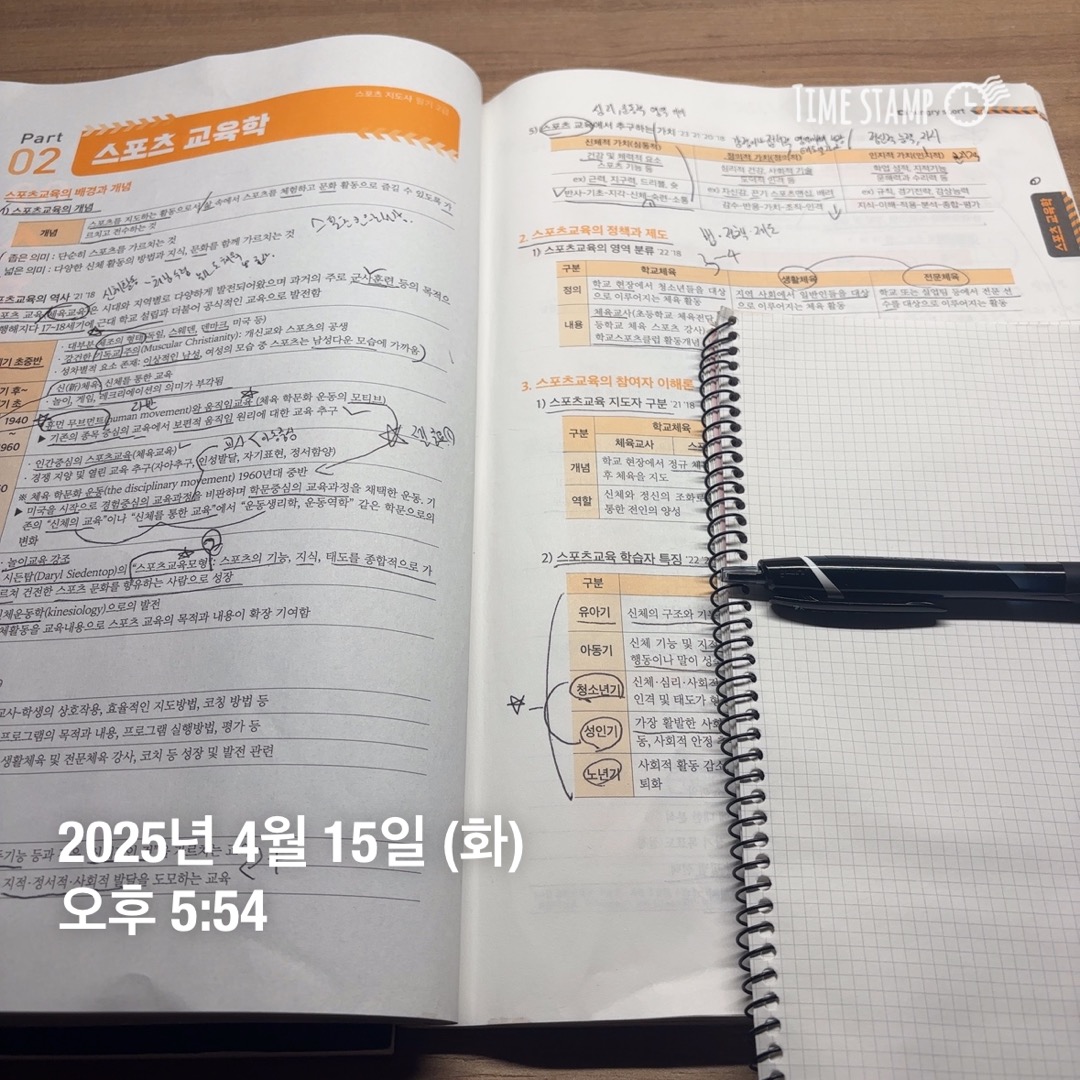 스포츠 지도사 필기 2급
Part
02
스포츠 교육학
스포츠교육의 배경과 개념
1) 스포츠교육의 개념
개념
스포츠를 지도하는 활동으로서 삶 속에서 스포츠를 체험하고 문화 활동으로 즐길 수 있도록 가
르치고 전수하는 것
좁은 의미 : 단순히 스포츠를 가르치는 것
넓은 의미 : 다양한 신체 활동의 방법과 지식, 문화를 함께 가르치는 것
스포츠교육의 역사 '21 '18
스포츠 교육(체육교육)은 시대와 지역별로 다양하게 발전되어왔으며 과거의 주로 군사훈련 등의 목적으
행해지다 17-18세기에 근대 학교 설립과 더불어 공식적인 교육으로 발전함
· 대부분 체조의 형태(독일, 스웨덴, 덴마크, 미국 등)
· 강건한 기독교주의(Muscular Christianity): 개신교와 스포츠의 공생
· 성차별적 요소 존재: 이상적인 남성, 여성의 모습 중 스포츠는 남성다운 모습에 가까움
기 초중반
· 신(新)체육, 신체를 통한 교육
· 놀이, 게임, 레크리에이션의 의미가 부각됨
기 후~
기 초
1940
~
960
휴먼 무브먼트(human movement)와 움직임교육 (체육 학문화 운동의 모티브)
▶ 기존의 종목 중심의 교육에서 보편적 움직임 원리에 대한 교육 추구
· 인간중심의 스포츠교육(체육교육)
· 경쟁 지양 및 열린 교육 추구(자아추구, 인성발달, 자기표현, 정서함양)
※ 체육 학문화 운동(the disciplinary movement) 1960년대 중반
▶ 미국을 시작으로 경험중심의 교육과정을 비판하며 학문중심의 교육과정을 채택한 운동. 기
존의 "신체의 교육"이나 "신체를 통한 교육"에서 "운동생리학, 운동역학" 같은 학문으로의
변화
· 놀이교육 강조
시든탑(Daryl Siedentop)의 "스포츠교육모형": 스포츠의 기능, 지식, 태도를 종합적으로 가
르쳐 건전한 스포츠 문화를 향유하는 사람으로 성장
신체운동학(kinesiology)으로의 발전
체활동을 교육내용으로 스포츠 교육의 목적과 내용이 확장 기여함
교사-학생의 상호작용, 효율적인 지도방법, 코칭 방법 등
프로그램의 목적과 내용, 프로그램 실행방법, 평가 등
생활체육 및 전문체육 강사, 코치 등 성장 및 발전 관련
지적·정서적·사회적 발달을 도모하는 교육
TIME STAMP
5) 스포츠 교육에서 추구하는 가치 '23 '21 '20 '18
신체적 가치(심동적) 정의적 가치(정의적) 인지적 가치(인지적)
건강 및 체력적 요소
스포츠 기능 등
심리적 건강, 사회적 기술
도덕적 인격 등
학업 성적, 지적기능
문해력과 수리력 등
ex) 근력, 지구력, 드리블, 슛
ex) 자신감, 끈기 스포츠맨십, 배려
ex) 규칙, 경기전략, 감상능력
반사-기초-지각-신체-숙련-소통
감수-반응-가치-조직-인격
지식-이해-적용-분석-종합-평가
스포츠 교육학
2. 스포츠교육의 정책과 제도
법·정책·제도
3-4
1) 스포츠교육의 영역 분류 '22 '18
구분 학교체육 생활체육 전문체육
정의
학교 현장에서 청소년들을 대상
으로 이루어지는 체육 활동
지역 사회에서 일반인들을 대상
으로 이루어지는 체육 활동
학교 또는 실업팀 등에서 전문 선
수를 대상으로 이루어지는 활동
내용
체육교사(초등학교 체육전담
등학교 체육 스포츠 강사)
학교스포츠클럽 활동개념
3. 스포츠교육의 참여자 이해론
1) 스포츠교육 지도자 구분 '21 '18
구분 학교체육
체육교사
개념
학교 현장에서 정규 체
후 체육을 지도
역할
신체와 정신의 조화발
통한 전인의 양성
2) 스포츠교육 학습자 특징 '22
구분
유아기 신체의 구조와 기
아동기
신체 기능 및 지각
행동이나 말이 성
청소년기
신체·심리·사회적
인격 및 태도가 형
성인기
가장 활발한 사회
동, 사회적 안정 추
노년기
사회적 활동 감소
퇴화
2025년 4월 15일 (화)
오후 5:54